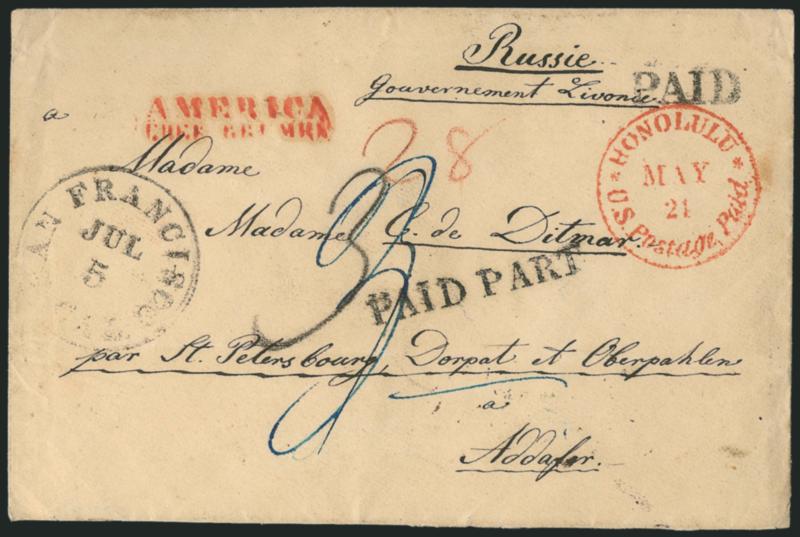 Russie
Gouvernement Livonie
PAID
a
AMERICA
UEBER BREMEN
HONOLULU
MAY
21
US Postage Paid
28
Madame
SAN FRANCISCO
JUL
5
CAL.
3
Madame C. de Ditmar
PAID PART
par St. Petersbourg, Dorpat et Oberpahlen
a
Addafer.